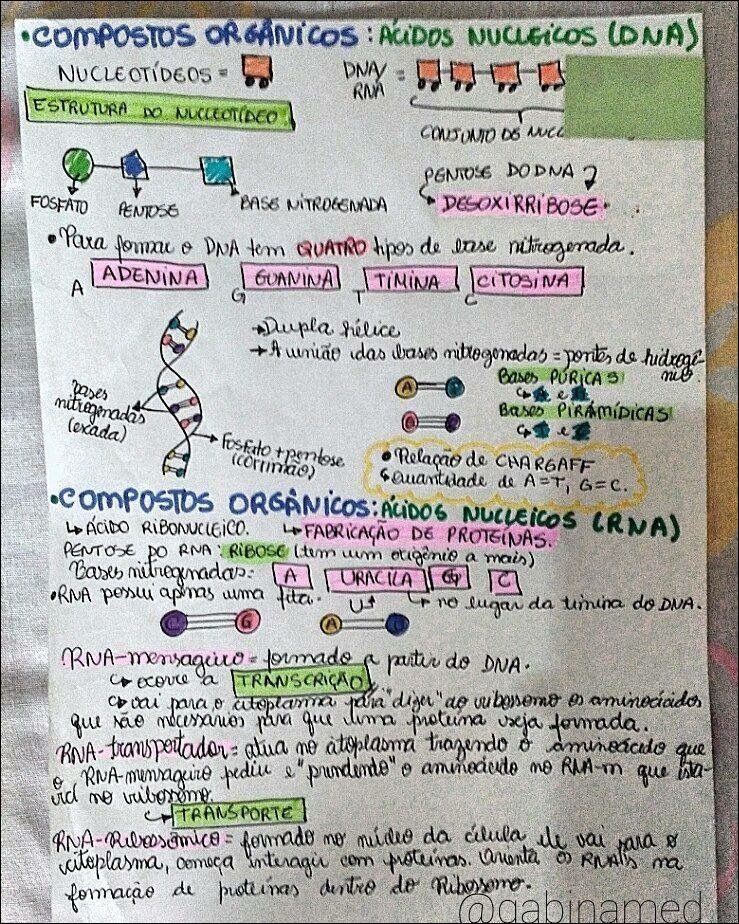 •COMPOSTOS ORGÂNICOS: ÁCIDOS NUCLEICOS (DNA)
NUCLEOTÍDEOS =
DNA/RNA =
ESTRUTURA DO NUCLEOTÍDEO
CONJUNTO DE
FOSFATO PENTOSE BASE NITROGENADA
PENTOSE DO DNA
DESOXIRRIBOSE.
•Para formar o DNA tem QUATRO tipos de base nitrogenada.
A ADENINA G GUANINA T TIMINA C CITOSINA
→Dupla hélice
→A união das bases nitrogenadas = pontes de hidrogênio.
Bases nitrogenadas (exada)
Fosfato + pentose (corrimão)
A
G C
Bases PÚRICAS
e
Bases PIRAMÍDICAS
e
•Relação de CHARGAFF
Quantidade de A=T, G=C.
•COMPOSTOS ORGÂNICOS: ÁCIDOS NUCLEICOS (RNA)
↳ÁCIDO RIBONUCLEICO. ↳FABRICAÇÃO DE PROTEINAS.
PENTOSE DO RNA: RIBOSE (tem um oxigênio a mais)
Bases nitrogenadas: A URACILA G C
•RNA possui apenas uma fita. U ↳ no lugar da timina do DNA.
C G A U
RNA-mensageiro = formado a partir do DNA.
↳ ocorre a TRANSCRIÇÃO
↳ vai para o citoplasma para "dizer" ao ribossomo os aminoácidos
que são necessários para que uma proteína seja formada.
RNA-transportador = atua no citoplasma trazendo o aminoácido que
o RNA-mensageiro pediu e "prendendo" o aminoácido no RNA-m que está
no ribossomo.
↳ TRANSPORTE
RNA-Ribossômico = formado no núcleo da célula ele vai para o
citoplasma, começa interagir com proteínas. Orienta os RNAs na
formação de proteínas dentro do Ribossomo.
@gabinamed